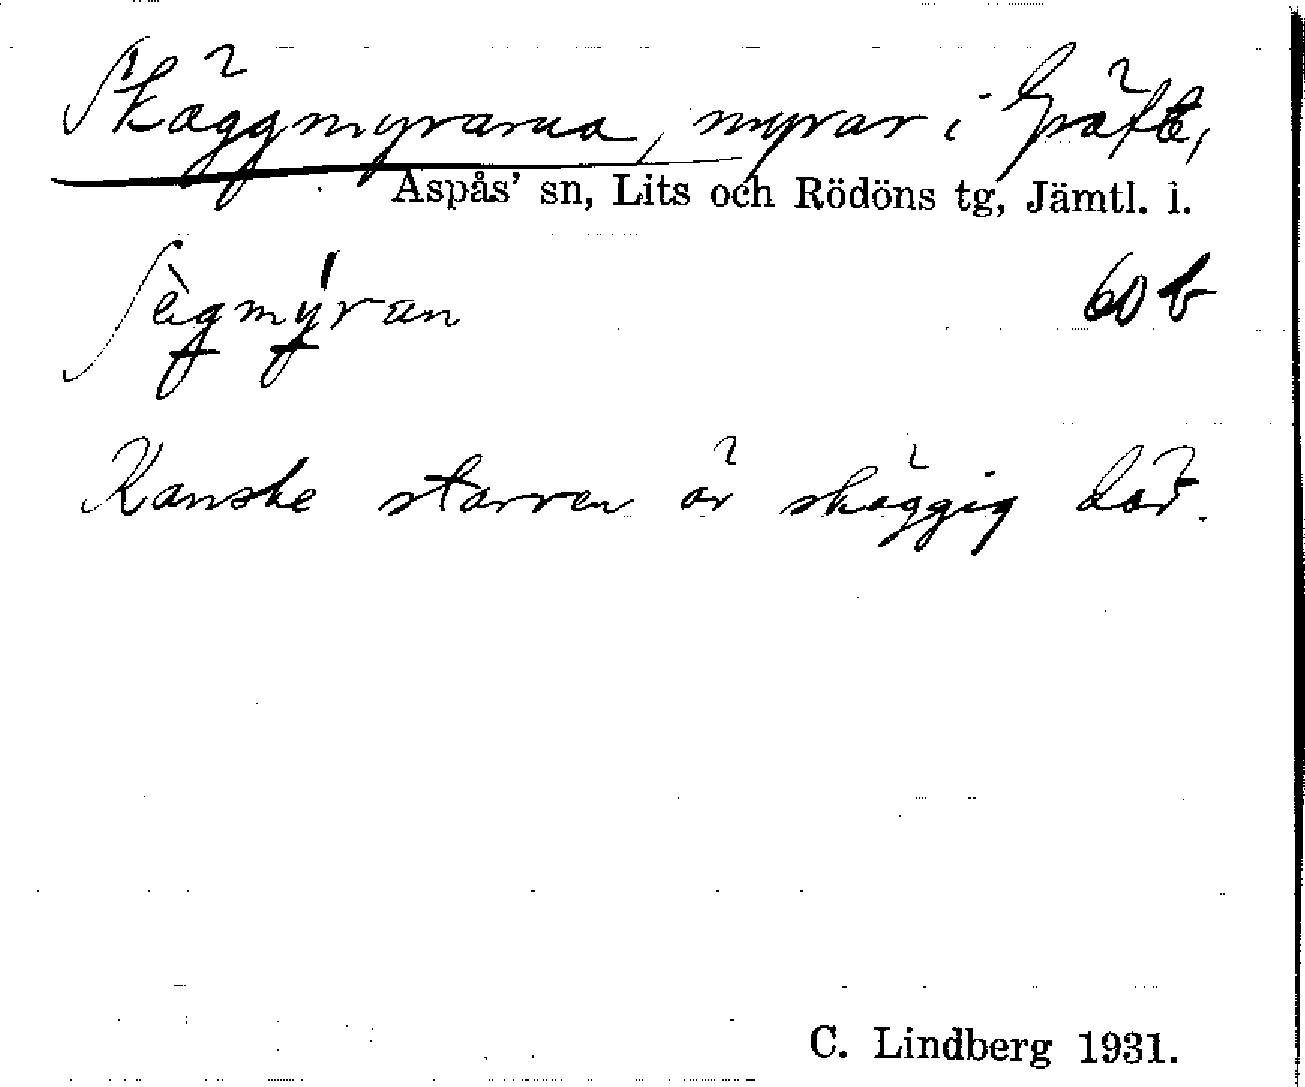 Skäggmyrarna, myrar i Gräfte,
Aspås' sn, Lits och Rödöns tg, Jämtl. l.
60 b
Kanske starren är skäggig där.
C. Lindberg 1931.